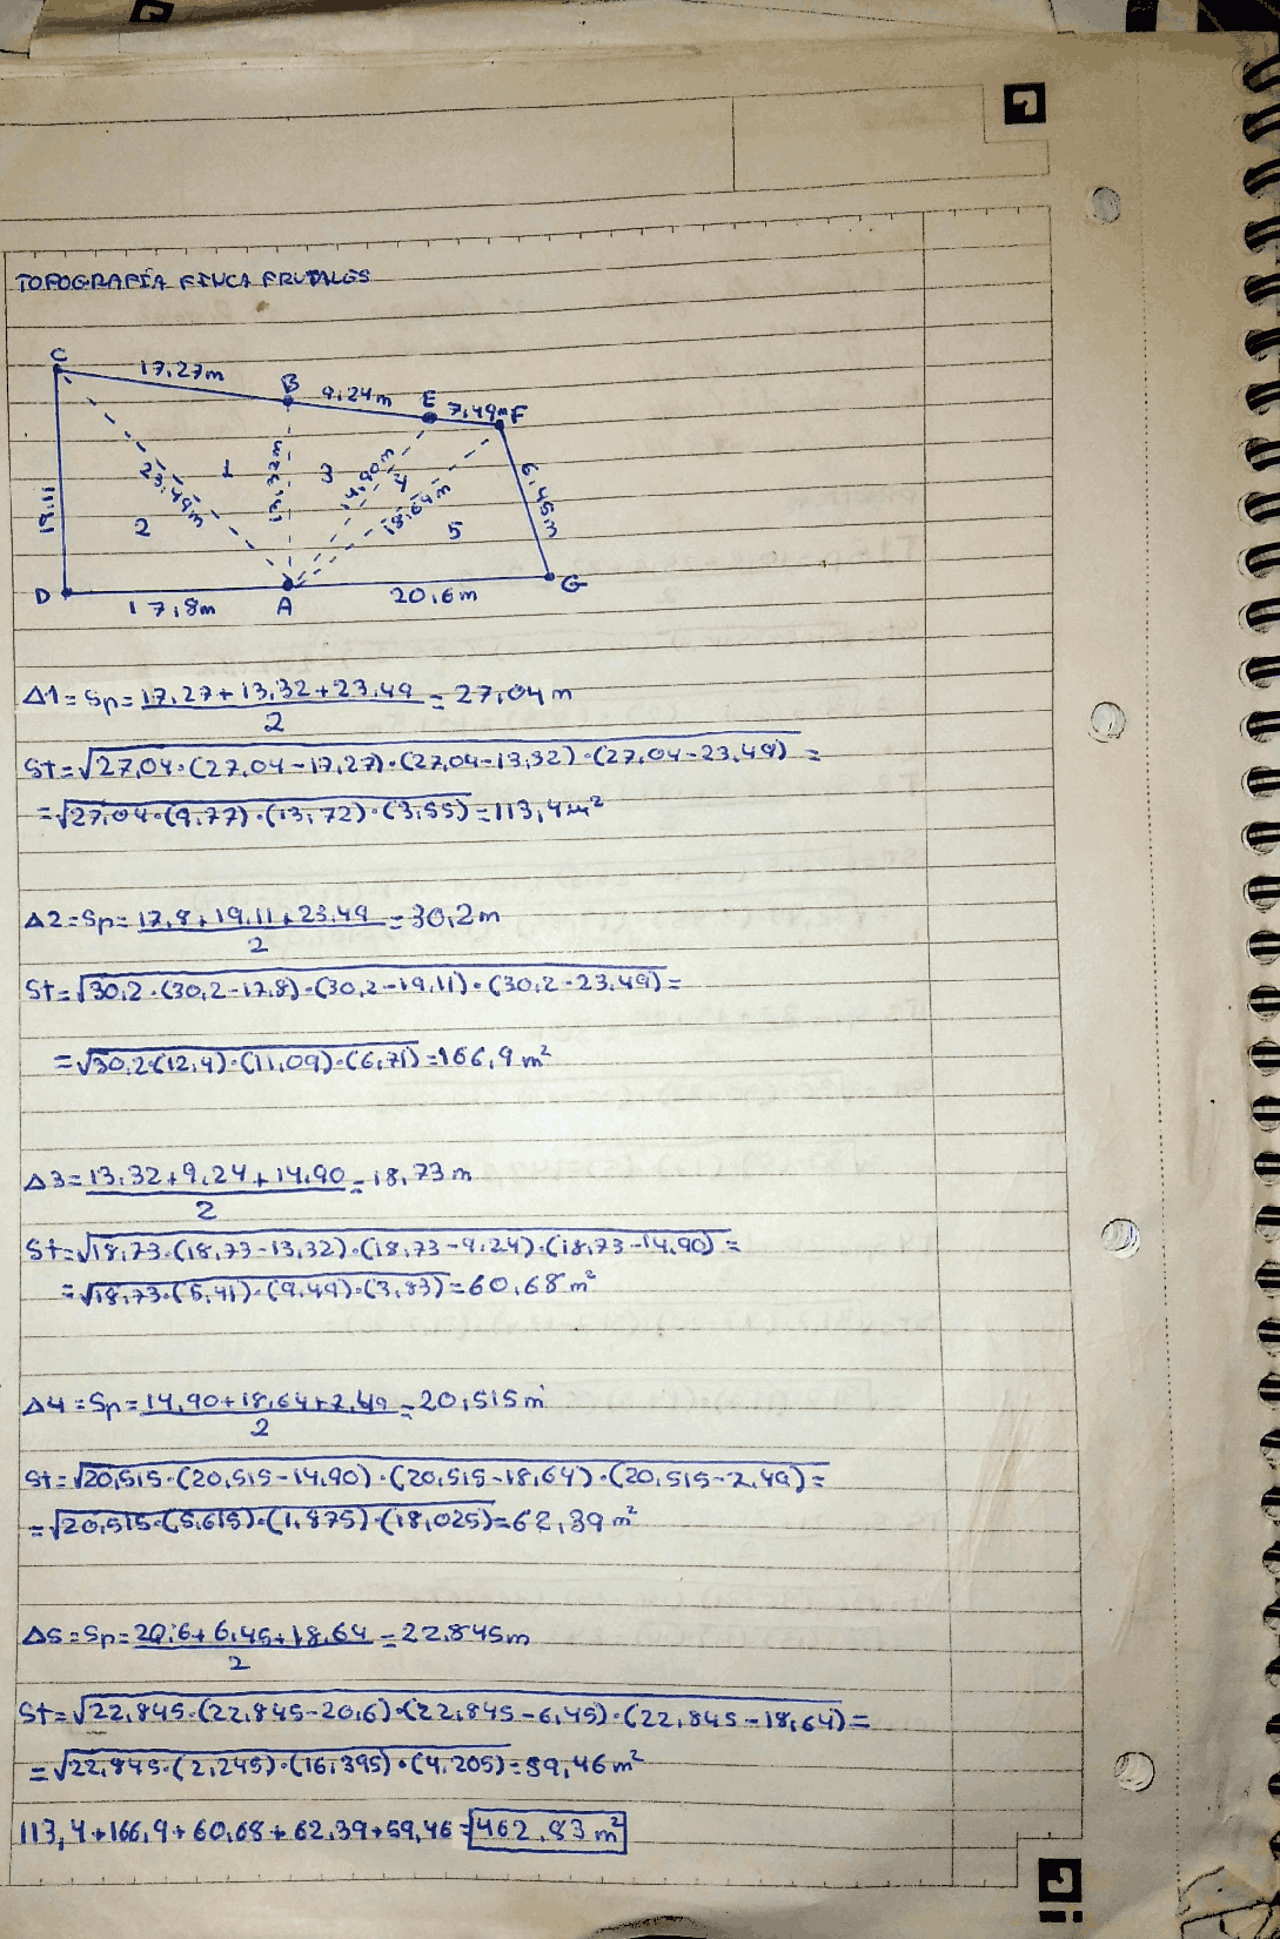 TOPOGRAFÍA FINCA FRUTALES
C
17,27m
B
9,24m
E
7,49m
F
19,11
23,49m
1
13,32m
3
14,90m
4
18,64m
6,45m
2
5
D
17,8m
A
20,6m
G
Δ1=Sp=17,27+13,32+23,49/2=27,04m
St=√27,04·(27,04-17,27)·(27,04-13,32)·(27,04-23,49)=
=√27,04·(9,77)·(13,72)·(3,55)=113,4m²
Δ2=Sp=17,8+19,11+23,49/2=30,2m
St=√30,2·(30,2-17,8)·(30,2-19,11)·(30,2-23,49)=
=√30,2·(12,4)·(11,09)·(6,71)=166,9m²
Δ3=13,32+9,24+14,90/2=18,73m
St=√18,73·(18,73-13,32)·(18,73-9,24)·(18,73-14,90)=
=√18,73·(5,41)·(9,49)·(3,83)=60,68m²
Δ4=Sp=14,90+18,64+7,49/2=20,515m
St=√20,515·(20,515-14,90)·(20,515-18,64)·(20,515-2,49)=
=√20,515·(5,615)·(1,875)·(18,025)=62,39m²
Δ5=Sp=20,6+6,45+18,64/2=22,845m
St=√22,845·(22,845-20,6)·(22,845-6,45)·(22,845-18,64)=
=√22,845·(2,245)·(16,395)·(4,205)=59,46m²
113,4+166,9+60,68+62,39+59,46=462,83m²